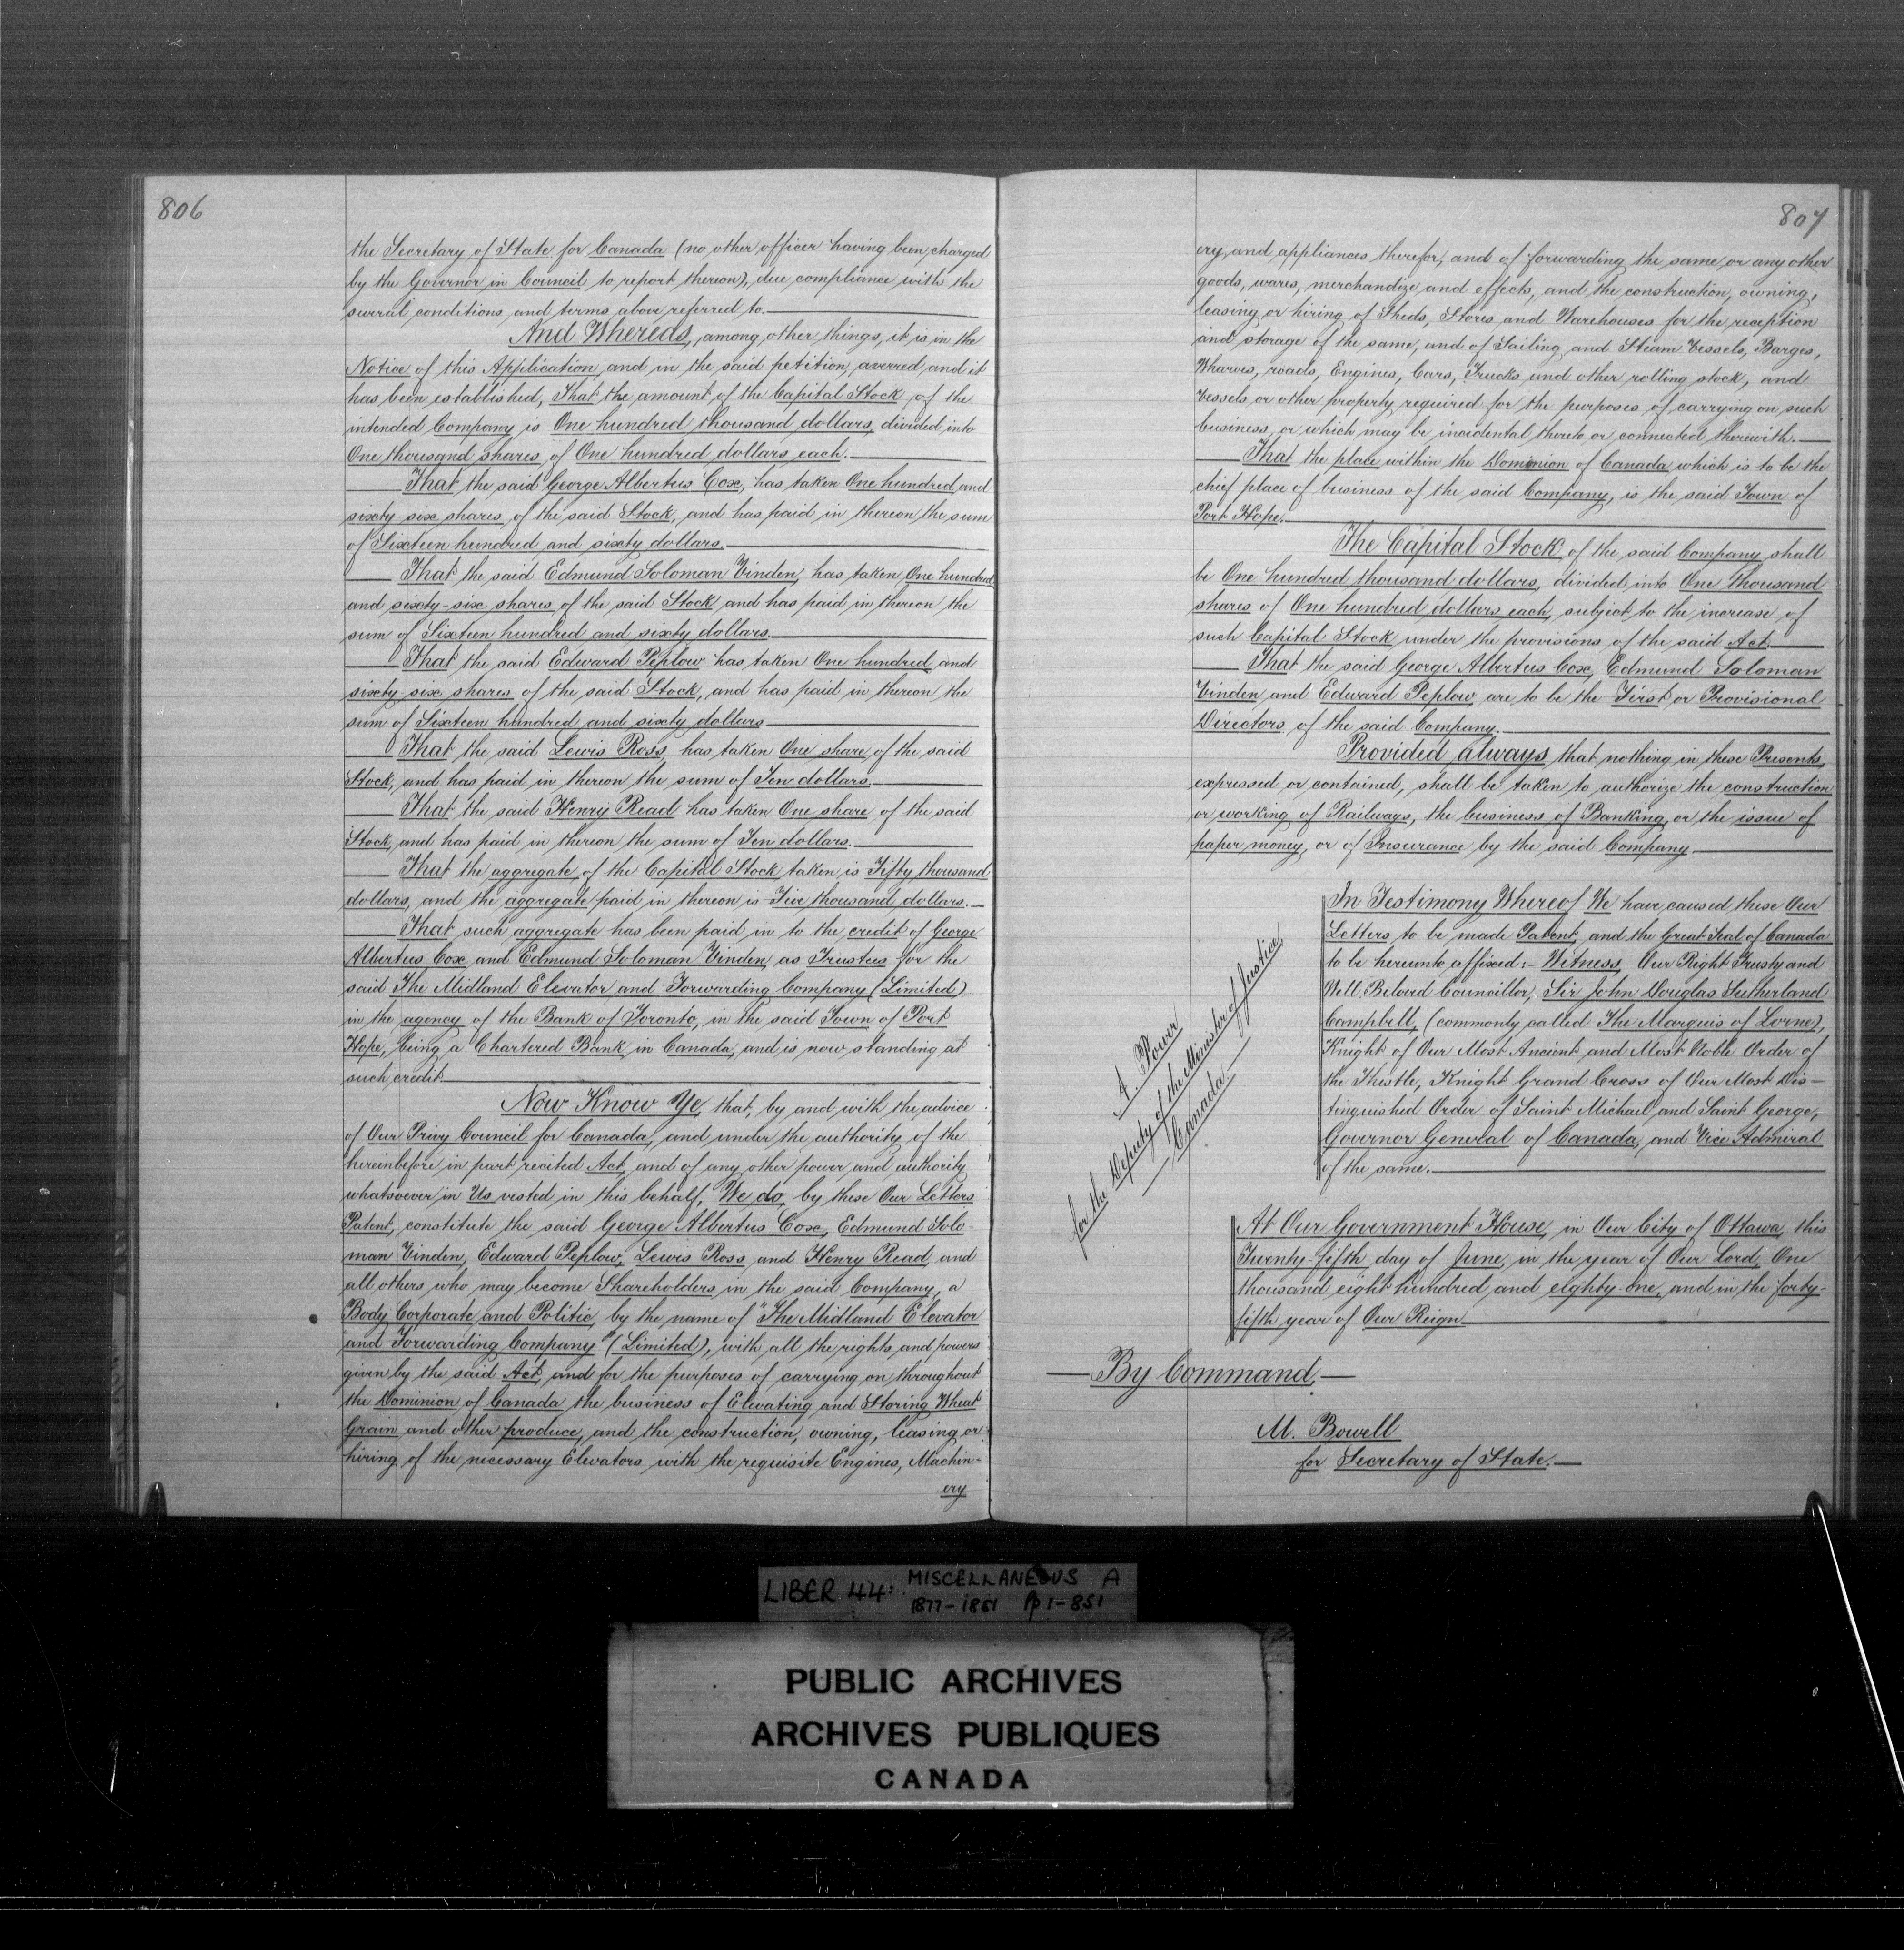 806
the Secretary of State for Canada (no other officer having been charged
by the Governor in Council to report thereon), due compliance with the
several conditions and terms above referred to.
And Whereas, among other things, it is in the
Notice of this Application, and in the said petition, averred, and it
has been established, That the amount of the Capital Stock of the
intended Company is One hundred thousand dollars, divided into
One thousand shares of One hundred dollars each.
That the said George Albertus Cox, has taken One hundred and
sixty-six shares of the said Stock, and has paid in thereon the sum
of Sixteen hundred and sixty dollars.
That the said Edmund Soloman Vinden, has taken One hundred
and sixty-six shares of the said Stock and has paid in thereon the
sum of Sixteen hundred and sixty dollars.
That the said Edward Peplow has taken One hundred and
sixty-six shares of the said Stock, and has paid in thereon the
sum of Sixteen hundred and sixty dollars
That the said Lewis Ross, has taken One share, of the said
Stock, and has paid in thereon the sum of Ten dollars.
That the said Henry Read has taken One share of the said
Stock, and has paid in thereon the sum of Ten dollars.
That the aggregate of the Capital Stock taken is Fifty thousand
dollars, and the aggregate paid in thereon is Five thousand dollars.
That such aggregate has been paid in to the credit of George
Albertus Cox and Edmund Soloman Vinden, as Trustees for the
said The Midland Elevator and Forwarding Company (Limited)
in the agency of the Bank of Toronto, in the said Town of Port
Hope, being a Chartered Bank in Canada, and is now standing at
such credit.
Now Know Ye, that, by and with the advice
of Our Privy Council for Canada, and under the authority of the
hereinbefore in part recited Act, and of any other power and authority
whatsoever in Us vested in this behalf, We do, by these Our Letters
Patent, constitute the said George Albertus Cox, Edmund Solo-
man Vinden, Edward Peplow, Lewis Ross and Henry Read, and
all others who may become Shareholders in the said Company, a
Body Corporate and Politic, by the name of "The Midland Elevator
and Forwarding Company" (Limited), with all the rights and powers
given by the said Act, and for the purposes of carrying on throughout
the Dominion of Canada the business of Elevating and Storing Wheat
Grain and other produce, and the construction, owning, leasing or
hiring of the necessary Elevators with the requisite Engines, Machin-
ery
807
ery, and appliances therefor, and of forwarding the same, or any other
goods, wares, merchandize and effects, and the construction, owning,
leasing or hiring of Sheds, Stores and Warehouses for the reception
and storage of the same, and of Sailing and Steam Vessels, Barges,
Wharves, roads, Engines, Cars, Trucks and other rolling stock, and
Vessels or other property required for the purposes of carrying on such
business, or which may be incidental thereto or connected therewith.
That the place within the Dominion of Canada which is to be the
chief place of business of the said Company, is the said Town of
Port Hope.
The Capital Stock of the said Company shall
be One hundred thousand dollars, divided into One thousand
shares of One hundred dollars each, subject to the increase of
such Capital Stock under the provisions of the said Act.
That the said George Albertus Cox, Edmund Soloman
Vinden and Edward Peplow, are to be the First or Provisional
Directors of the said Company.
Provided always that nothing in these Presents,
expressed or contained, shall be taken to authorize the construction
or working of Railways, the business of Banking, or the issue of
paper money, or of Insurance by the said Company.
A. Power
for the Deputy of the Minister of Justice,
Canada.
In Testimony Whereof We have caused these Our
Letters to be made Patent, and the Great Seal of Canada
to be hereunto affixed:- Witness, Our Right Trusty and
Well-Beloved Councillor, Sir John Douglas Sutherland
Campbell, (commonly called The Marquis of Lorne),
Knight of Our Most Ancient and Most Noble Order of
the Thistle, Knight Grand Cross of Our Most Dis-
tinguished Order of Saint Michael and Saint George,
Governor General of Canada, and Vice Admiral
of the same.
At Our Government House, in Our City of Ottawa, this
Twenty-fifth day of June, in the year of Our Lord, One
thousand eight hundred and eighty-one, and in the forty-
fifth year of Our Reign
By Command,
M. Bowell
for Secretary of State.
LIBER 44: MISCELLANEOUS A
1877-1881 Pp 1-851
PUBLIC ARCHIVES
ARCHIVES PUBLIQUES
CANADA